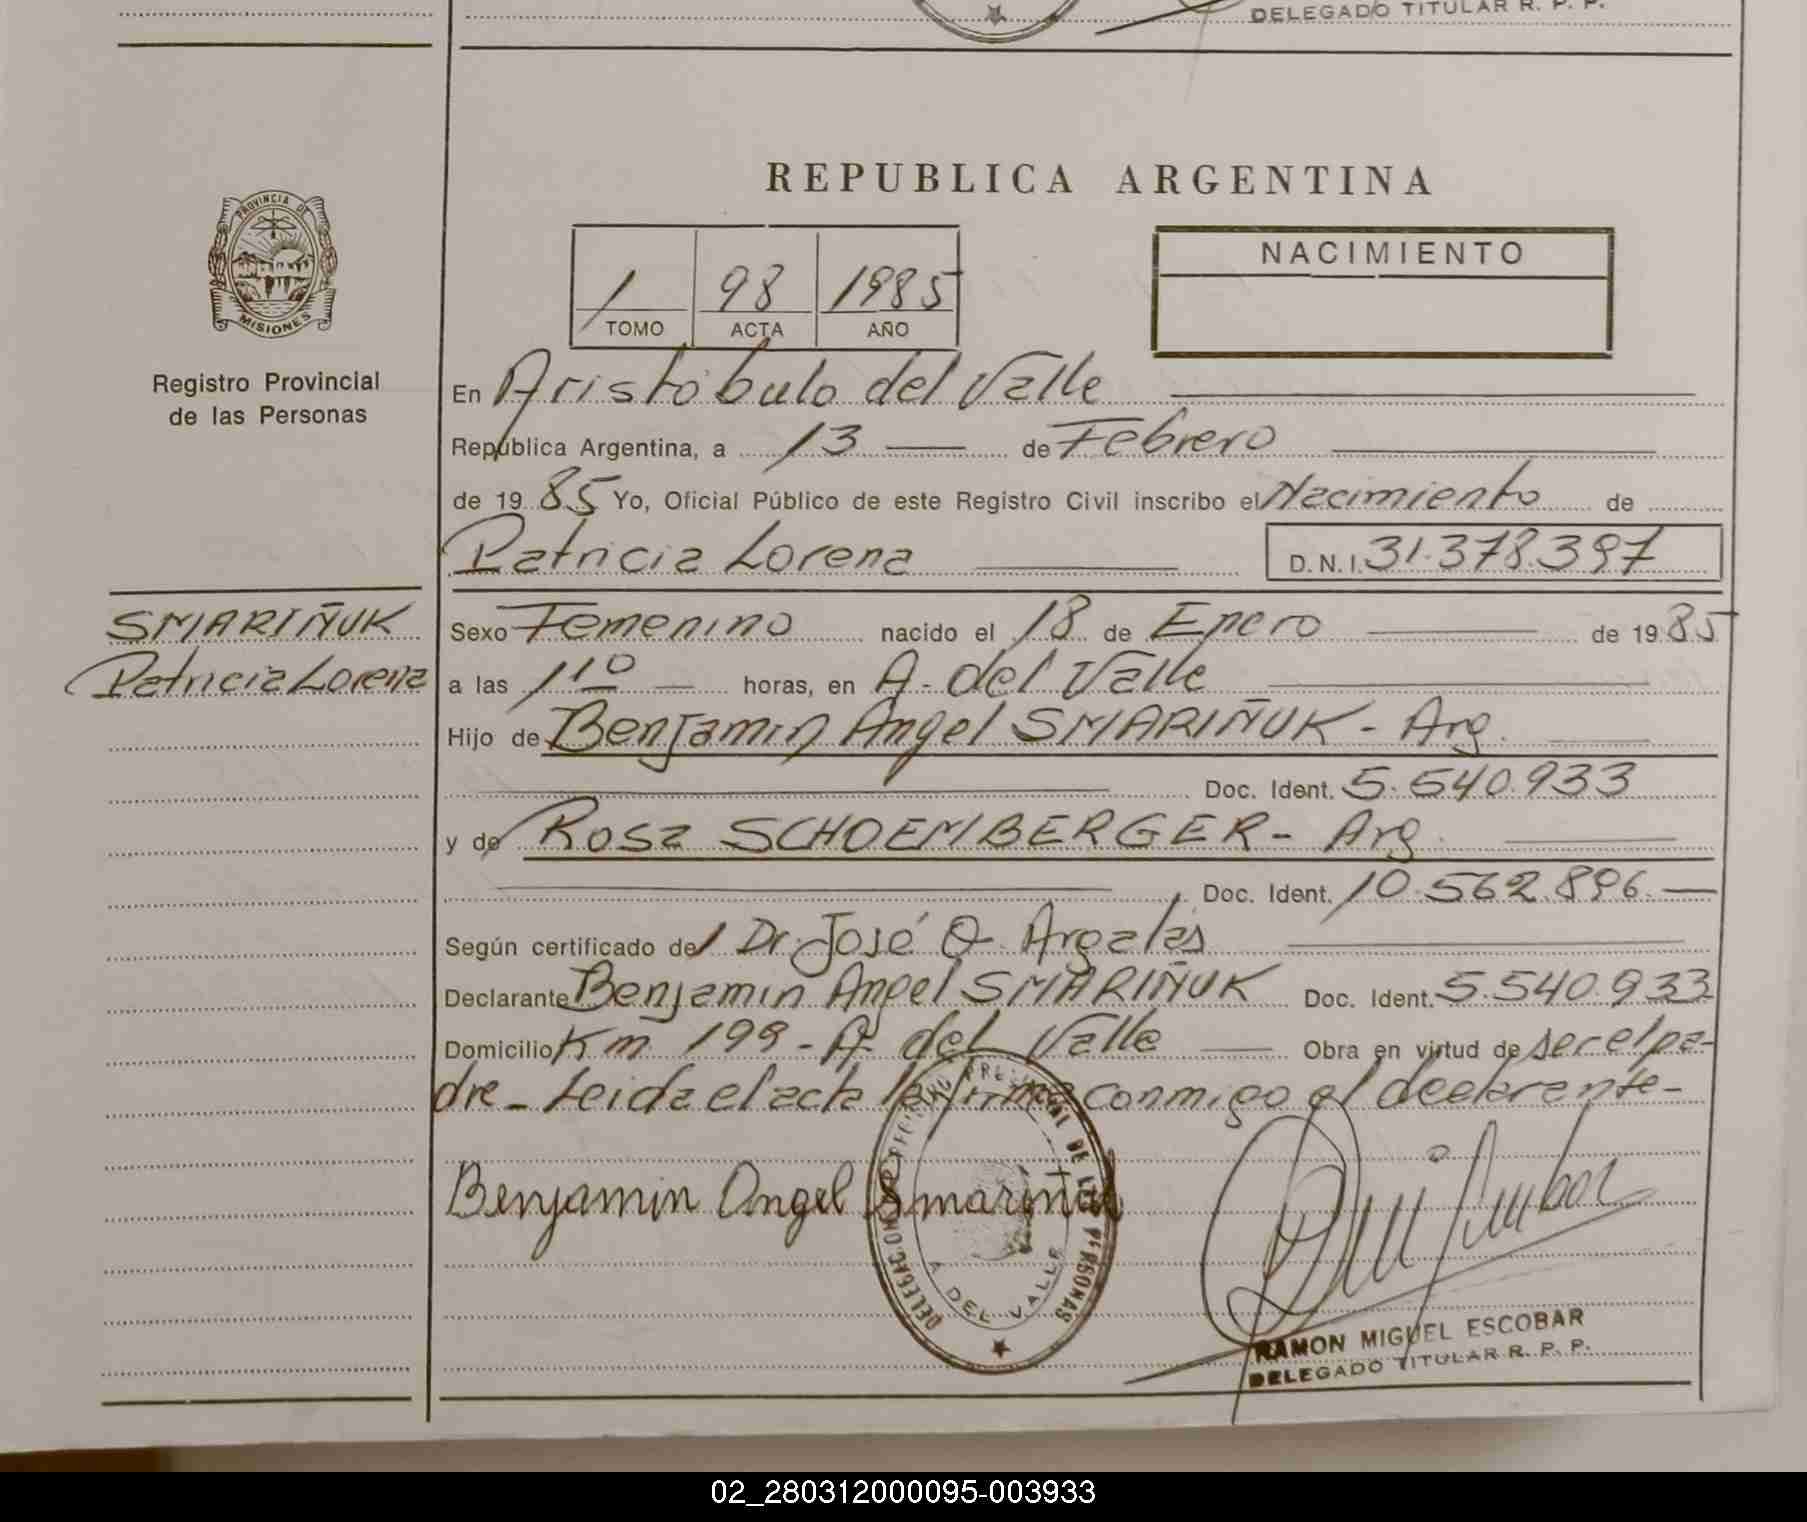 DELEGADO TITULAR R. P. P.
REPUBLICA ARGENTINA
PROVINCIA DE
MISIONES
Registro Provincial
de las Personas
1 98 1985
TOMO ACTA AÑO
NACIMIENTO
En Aristóbulo del Valle
República Argentina, a 13 de Febrero
de 1985 Yo, Oficial Público de este Registro Civil inscribo el Nacimiento de
Patricia Lorena D.N.I. 31.378.397
SMARIÑUK
Patricia Lorena
Sexo Femenino nacido el 18 de Enero de 1985
a las 11º horas, en A. del Valle
Hijo de Benjamin Angel SMARIÑUK - Arg.
Doc. Ident. 5.540.933
y de Rosa SCHOEMBERGER - Arg.
Doc. Ident. 10.562.896.
Según certificado del Dr. José O. Argalas
Declarante Benjamin Angel SMARIÑUK Doc. Ident. 5.540.933
Domicilio Km 199 - A. del Valle Obra en virtud de ser el pa-
dre - Leida el acta la firma conmigo el declarante -
Benjamin Angel Smariñuk
DELEGACION REGISTRO PROVINCIAL DE LAS PERSONAS
A. DEL VALLE
RAMON MIGUEL ESCOBAR
DELEGADO TITULAR R. P. P.
02_280312000095-003933